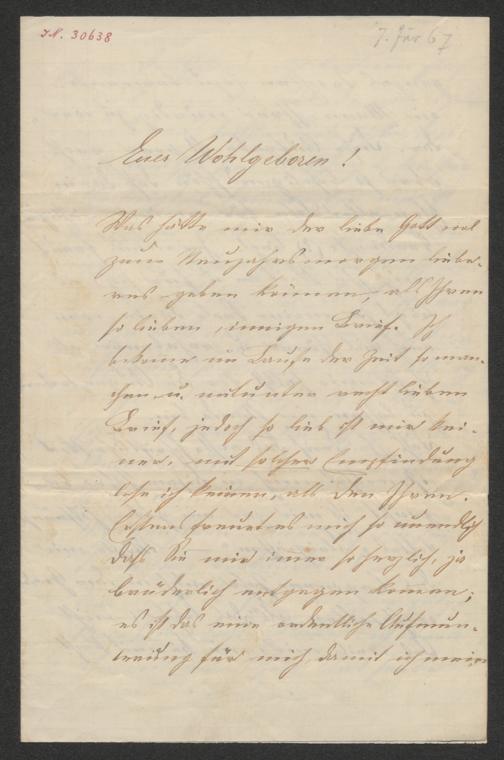 J.N. 30638
7. Jän 67
Euer Wohlgeboren!
Was hätte mir der liebe Gott wol
zum Neujahrsmorgen liebe-
res geben können, als Ihren
so lieben, innigen Brief. Ich
bekome im Laufe der Zeit so man-
chen u. mitunter recht lieben
Brief, jedoch so lieb ist mir kei-
ner, mit solcher Empfindung
lese ich keinen, als den Ihren.
Erstens freuet es mich so unendlich
daß Sie mir imer so herzlich, ja
brüderlich entgegen komen;
es ist das eine ordentliche Aufmun-
terung für mich, damit ich mein